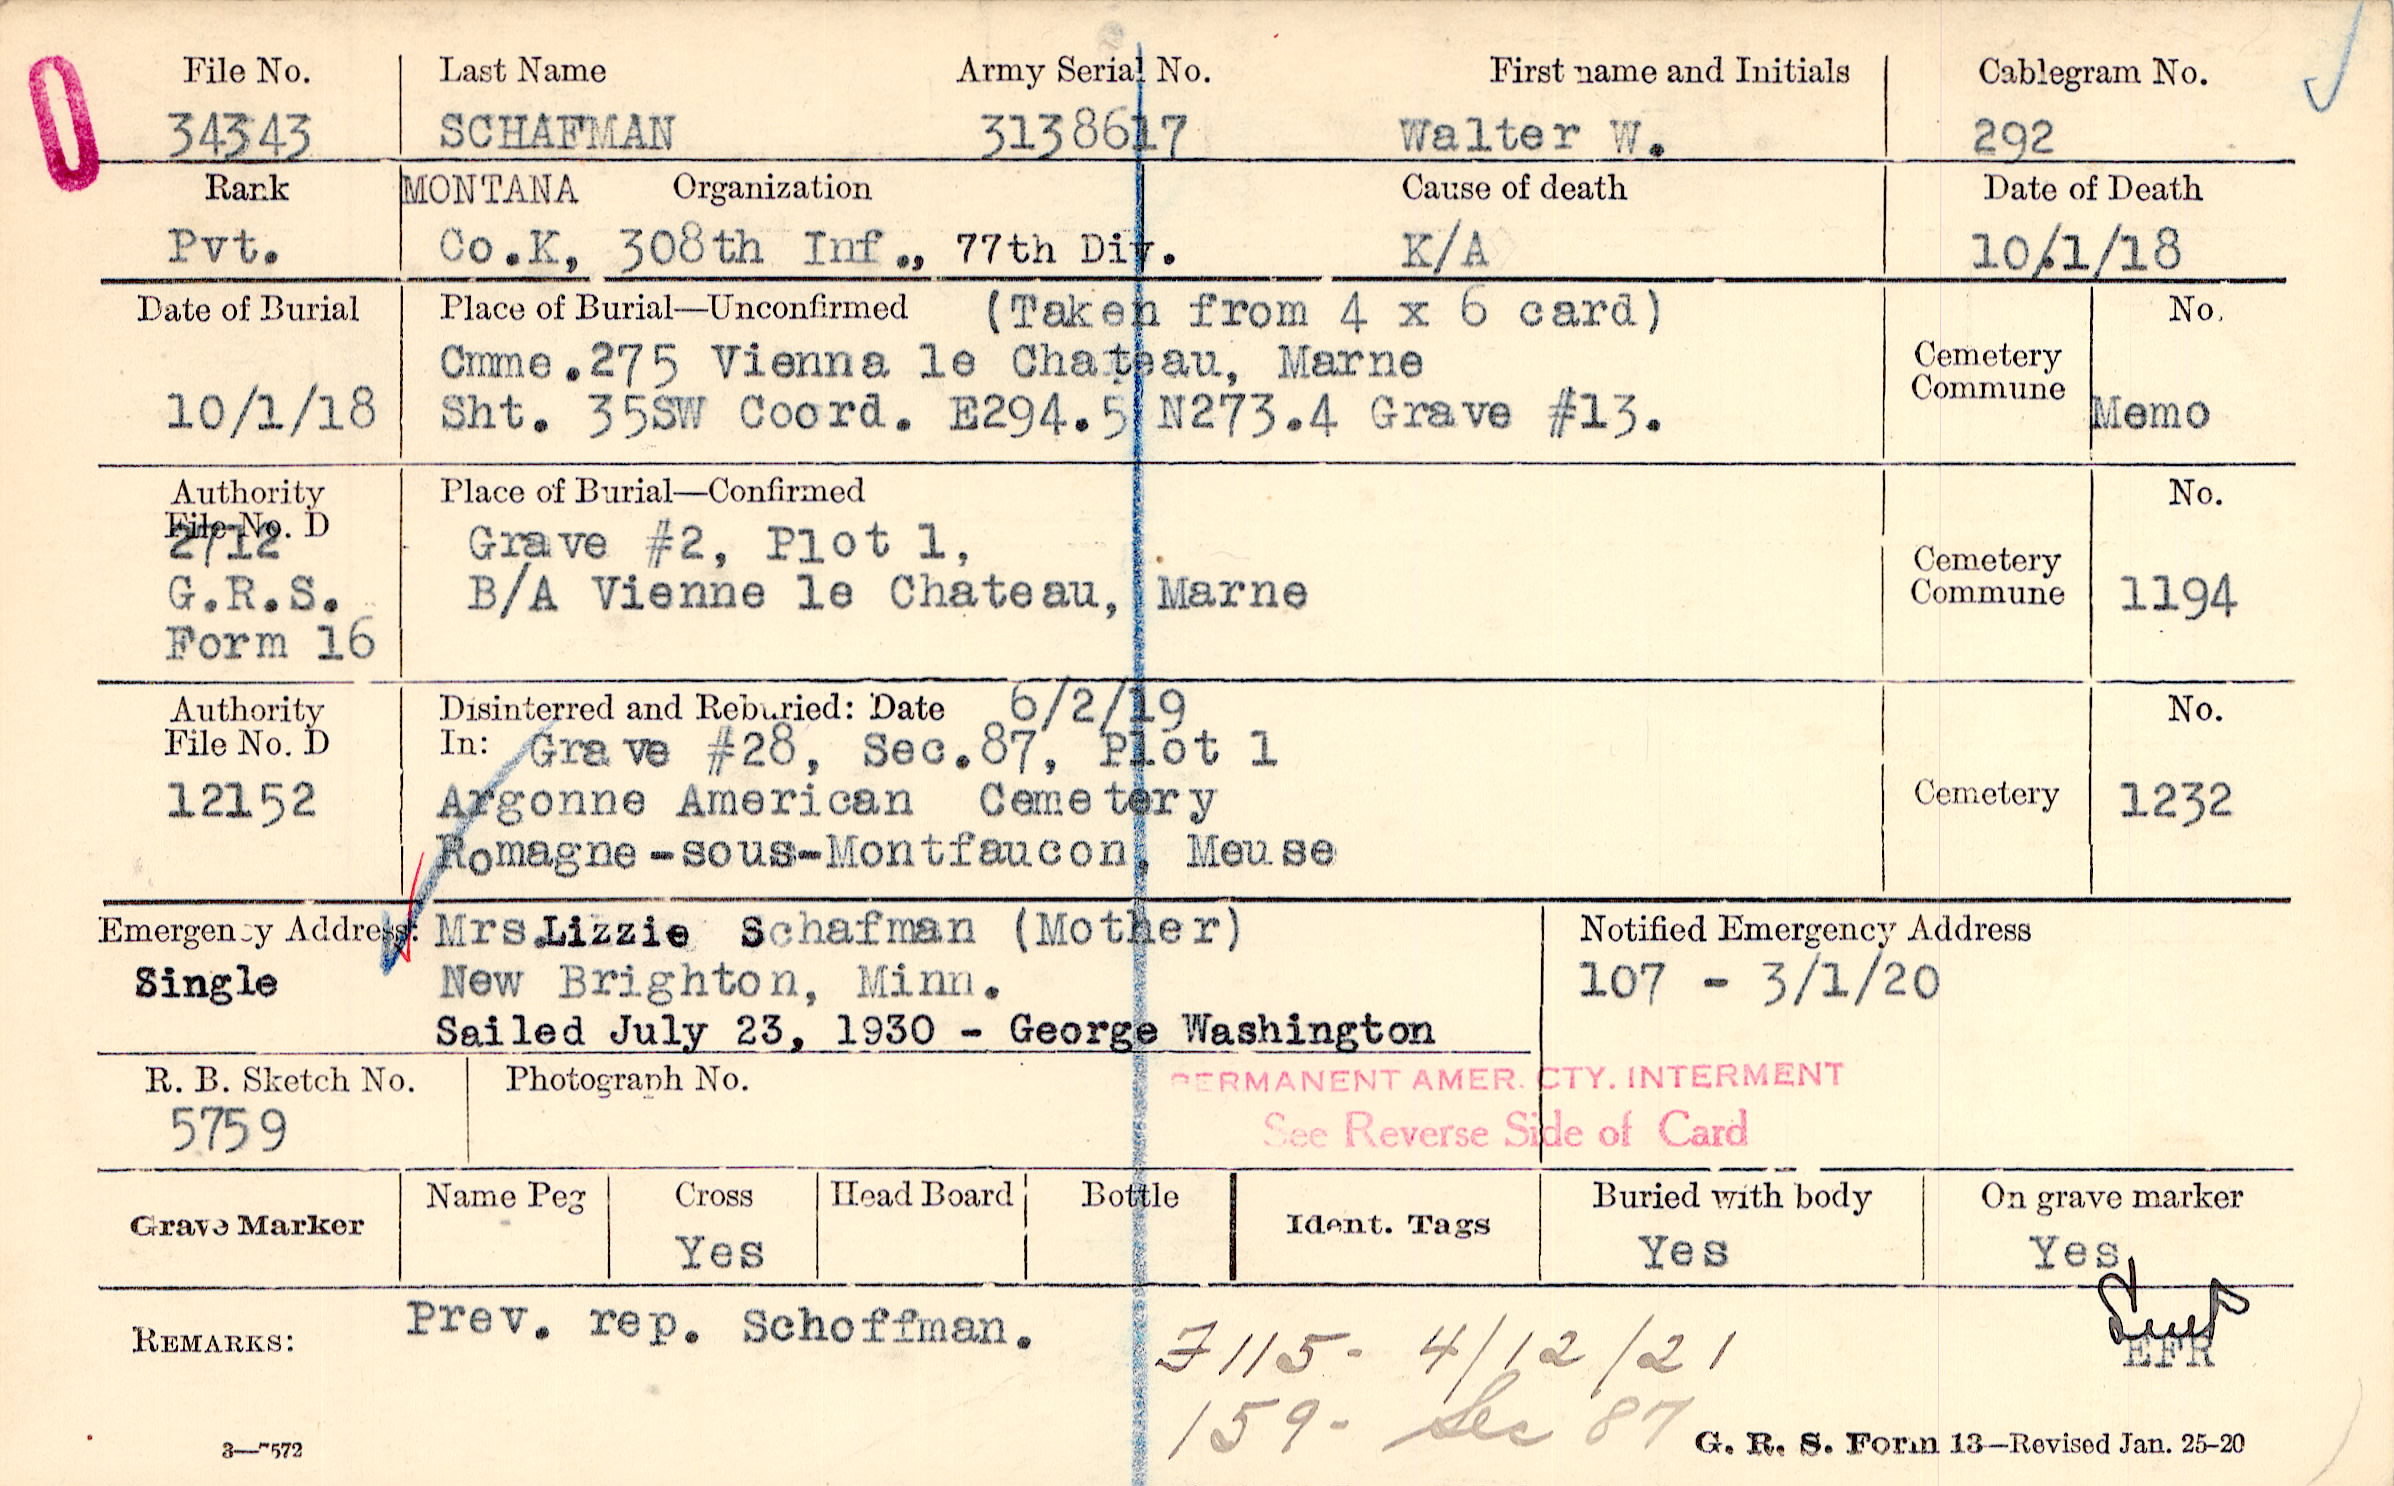 File No. Last Name Army Serial No. First name and Initials Cablegram No.
34343 SCHAFMAN 3138617 Walter W. 292
Rank MONTANA Organization Cause of death Date of Death
Pvt. Co.K, 308th Inf., 77th Div. K/A 10/1/18
Date of Burial Place of Burial—Unconfirmed (Taken from 4 x 6 card) No.
Cmme.275 Vienna le Chateau, Marne Cemetery
Commune
10/1/18 Sht. 35SW Coord. E294.5 N273.4 Grave #13. Memo
Authority Place of Burial—Confirmed No.
File No. D
2712 Grave #2, Plot 1, Cemetery
G.R.S. B/A Vienne le Chateau, Marne Commune 1194
Form 16
Authority Disinterred and Reburied: Date 6/2/19 No.
File No. D In: Grave #28, Sec.87, Plot 1
12152 Argonne American Cemetery Cemetery 1232
Romagne-sous-Montfaucon, Meuse
Emergency Address: Mrs.Lizzie Schafman (Mother) Notified Emergency Address
Single New Brighton, Minn. 107 - 3/1/20
Sailed July 23, 1930 - George Washington
R. B. Sketch No. Photograph No. PERMANENT AMER. CTY. INTERMENT
5759 See Reverse Side of Card
Name Peg Cross Head Board Bottle Buried with body On grave marker
Grave Marker Ident. Tags
Yes Yes Yes
REMARKS: Prev. rep. Schoffman.
EFR
F115- 4/12/21
159- Sec 87
3—7572 G. R. S. Form 13—Revised Jan. 25-20